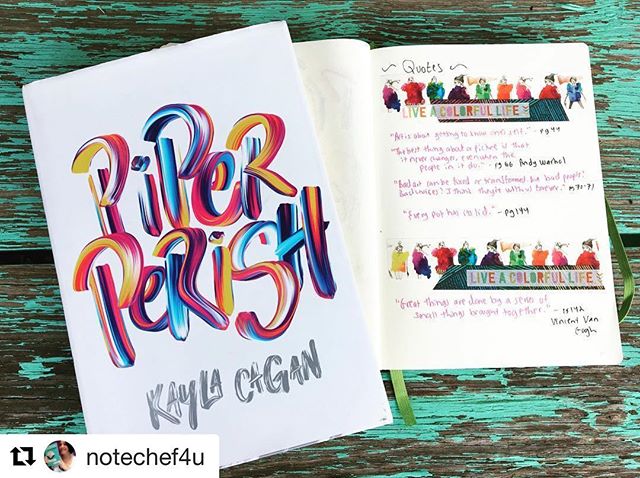 PiPER
PERiSH
KAYLA CAGAN
~ Quotes ~
LIVE A COLORFUL LIFE
"Art is about getting to know one's self." - pg 44
"The best thing about a picture is that
it never changes, even when the
people in it do." - pg 66 Andy Warhol
"Bad art can be fixed or transformed. But bad people?
Bad choices? I think they're with us forever." - pg 70-71
"Every pot has a lid." - pg 144
LIVE A COLORFUL LIFE
"Great things are done by a series of
small things brought together." - pg 142
Vincent Van
Gogh
notechef4u